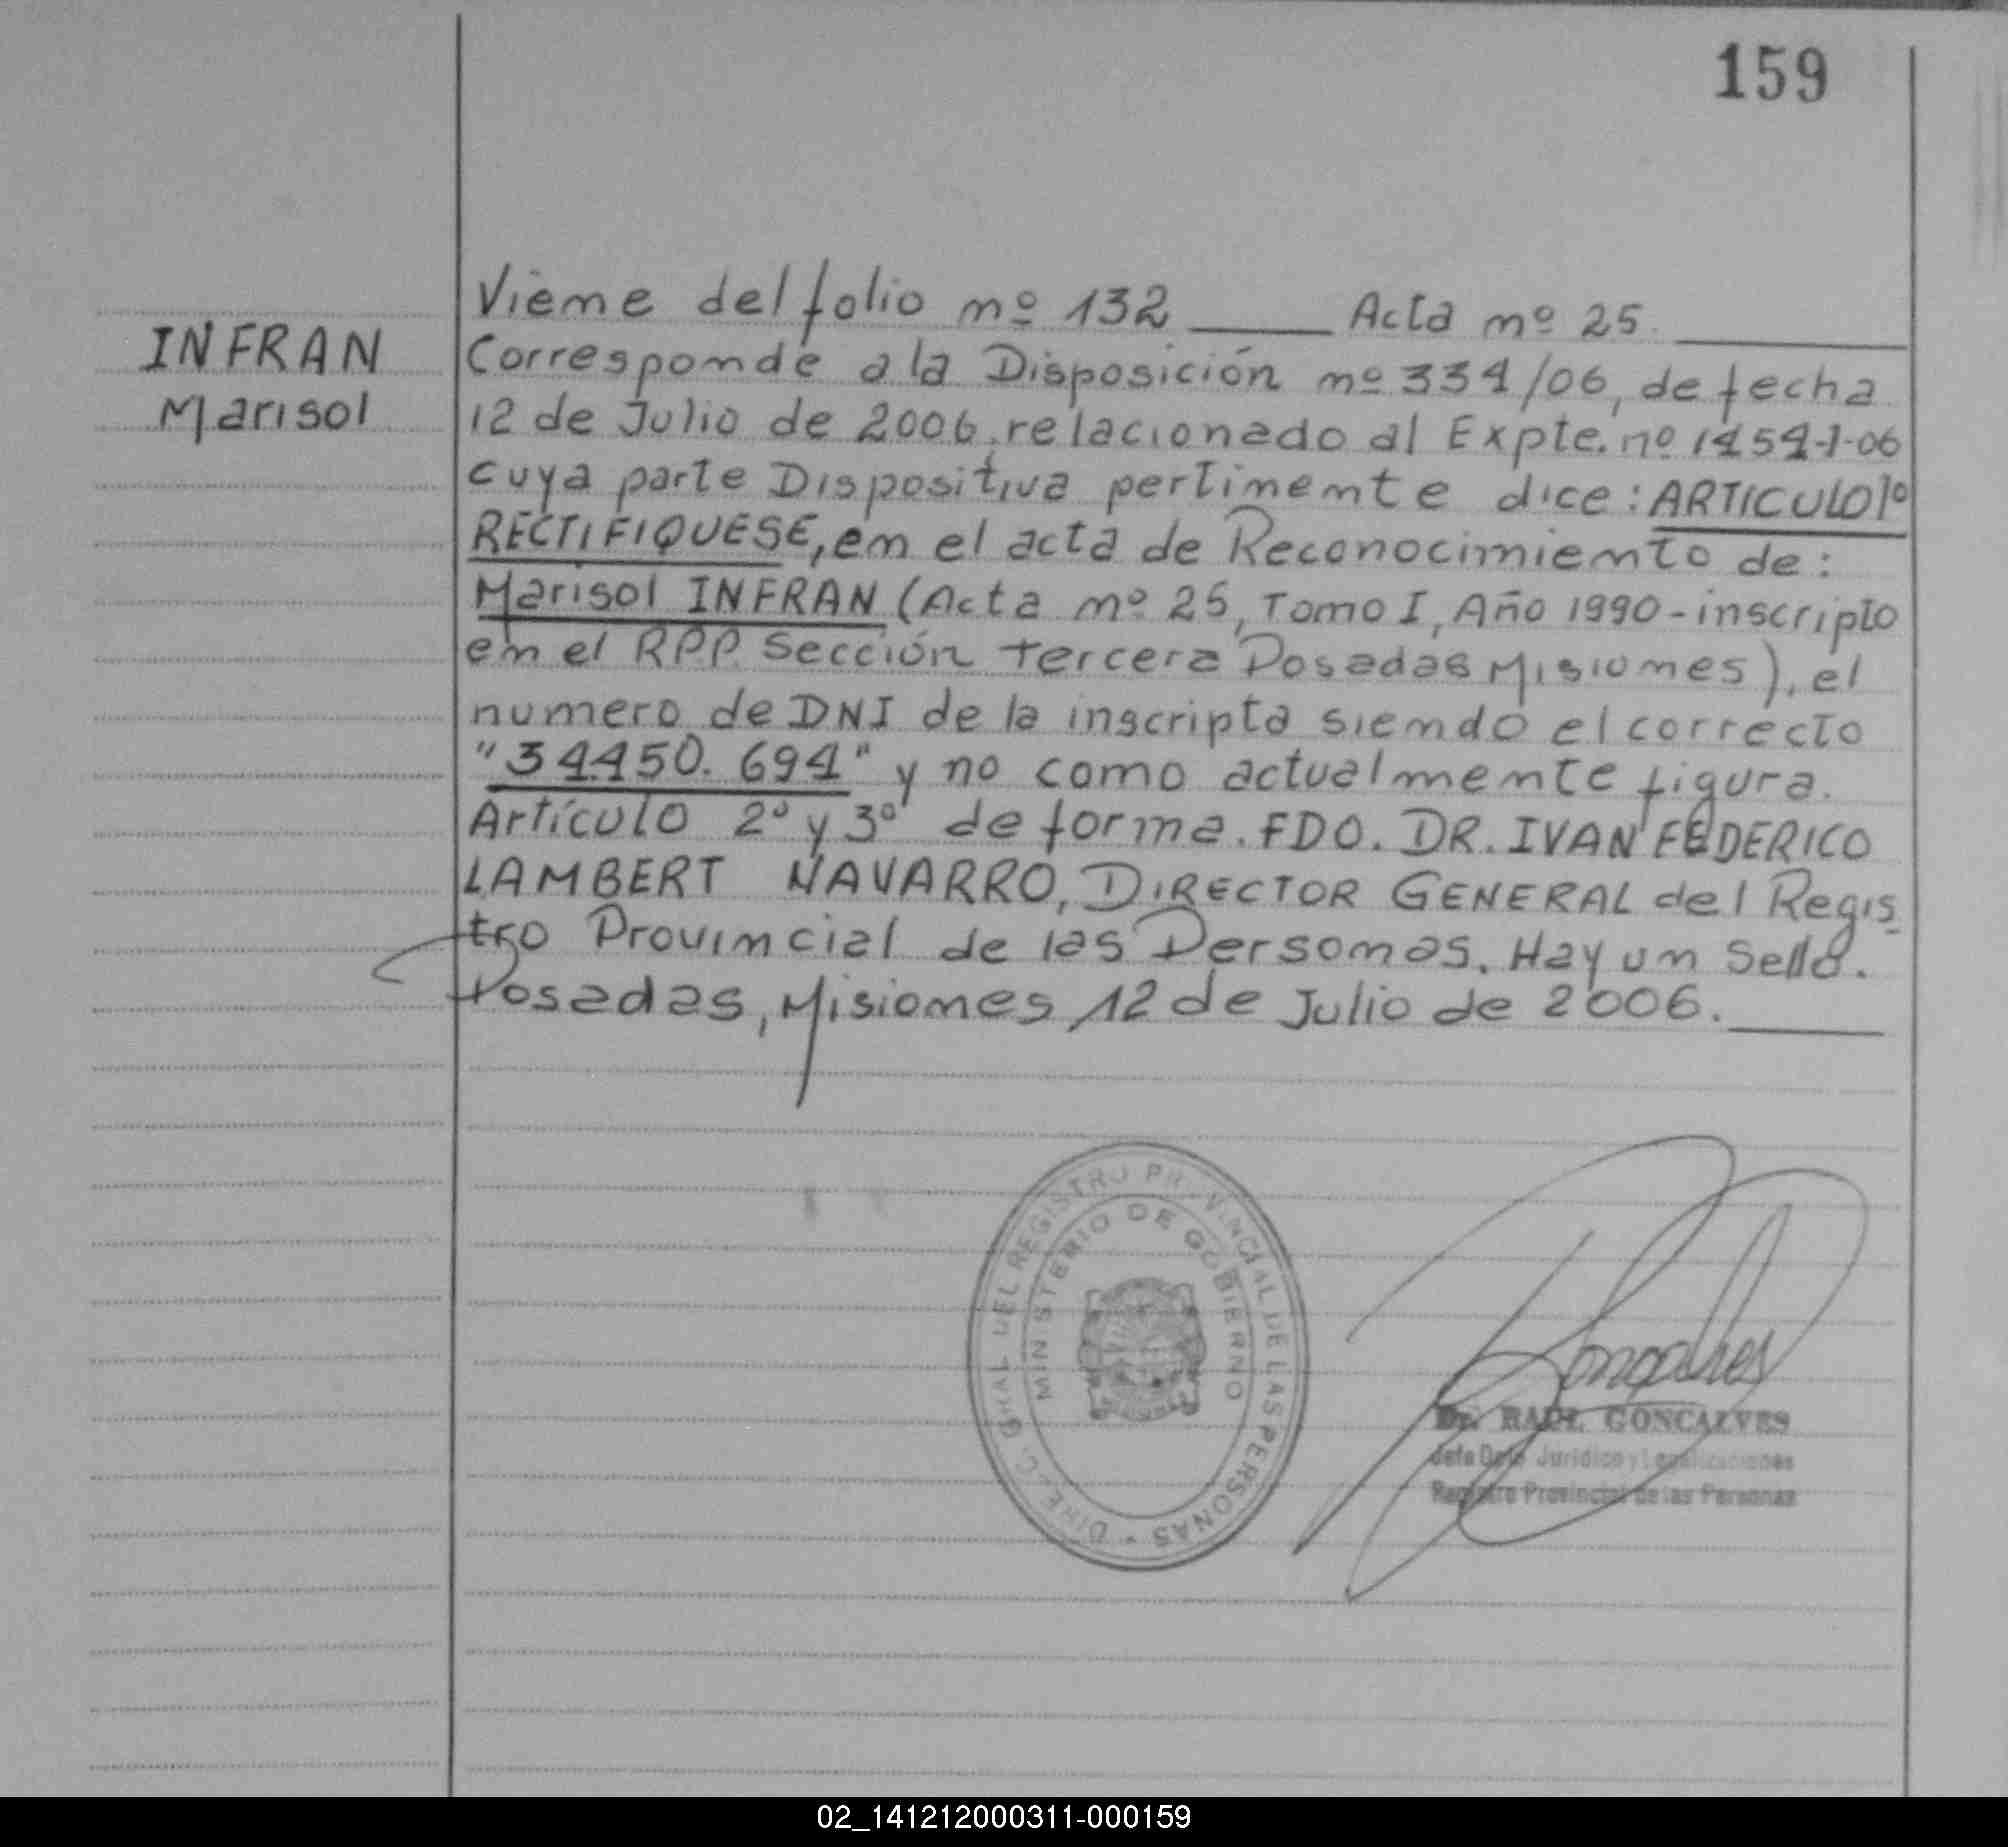 159
INFRAN
Marisol
Viene del folio nº 132 ____ Acta nº 25. ____
Corresponde a la Disposición nº 334/06, de fecha
12 de Julio de 2006, relacionado al Expte. nº 1454-1-06
cuya parte Dispositiva pertinente dice: ARTICULO 1º
RECTIFIQUESE, en el acta de Reconocimiento de:
Marisol INFRAN (Acta nº 25, Tomo I, Año 1990 - inscripto
en el RPP. Sección tercera Posadas Misiones), el
numero de DNI de la inscripta siendo el correcto
"34.450.694" y no como actualmente figura.
Artículo 2º y 3º de forma. FDO. DR. IVAN FEDERICO
LAMBERT NAVARRO, DIRECTOR GENERAL del Regis
tro Provincial de las Personas. Hay un Sello.
Posadas, Misiones, 12 de Julio de 2006. ____
DIREC. GRAL DEL REGISTRO PROVINCIAL DE LAS PERSONAS
MINISTERIO DE GOBIERNO
Gonçalves
Dr. RAUL GONCALVES
Jefe Dpto Jurídico y Legalizaciones
Registro Provincial de las Personas
02_141212000311-000159